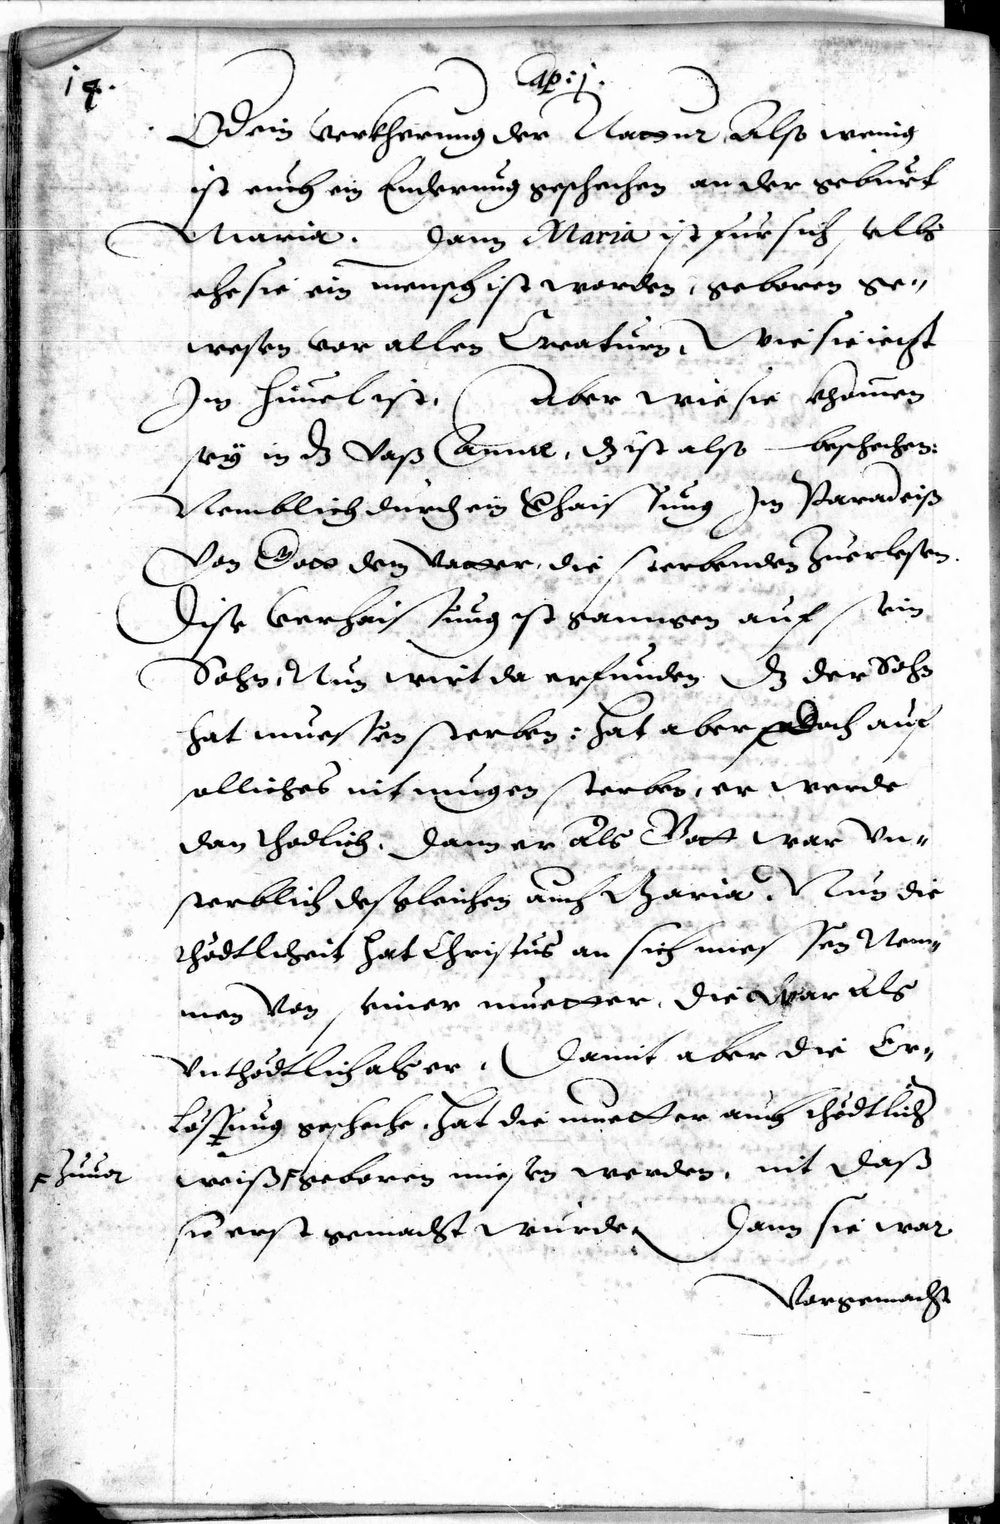 14.
Cap: j.
Od ein verkherung der Nattur, Also wenig
ist auch ein Enderung geschechen an der geburt
Maria. Dann Maria ist fur sich selbs
ehe sie ein mensch ist worden, geboren ge„
wesen vor allen Creaturn, Wie sie ietzt
Im himel ist. Aber wie sie khomen
seÿ in dz Vaß Annae, dz ist also beschechen:
Nemblich durch ein Vhaissung Im Paradeiß
Von Gott dem Vatter, die sterbenden Zuerlesen.
Dise Verhaissung ist ganngen auf sein
Sohn, Nun wirt da erfunden dz der Sohn
hat muessen sterben: hat aber doch auf
solliches nit mugen sterben, er werde
dan thodlich. Dann er als Gott war Vn„
sterblich desgleichen auch Maria. Nun die
thödtlicheit hat Christus an sich miessen Nem„
men Von seiner muetter, die War als
Vnthödtlich als er. Damit aber die Er„
lössung geschehe, hat die muetter auch thödtlich
weiß geboren miesen werden, nit daß
Zuuor
sie erst gemacht wurde, Dann sie war
Vorgemacht